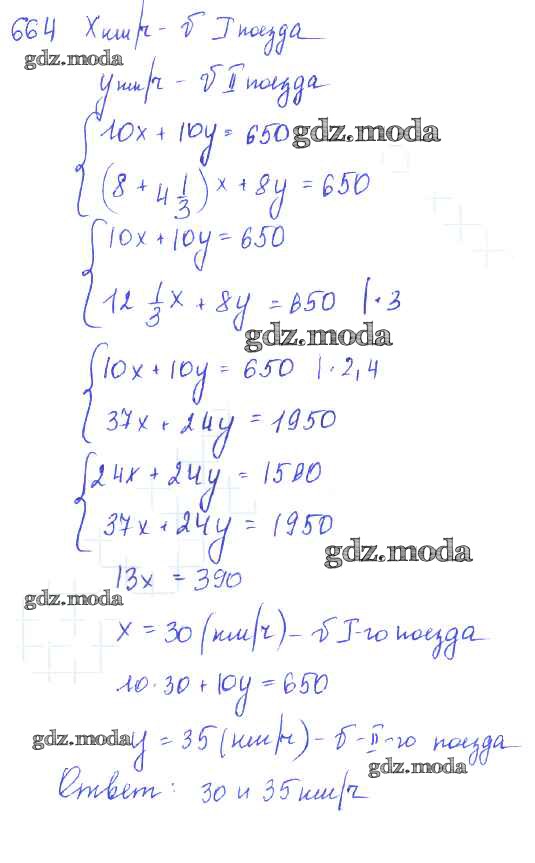 664 Xкм/ч - υ I поезда
gdz.moda
yкм/ч - υ II поезда
10x + 10y = 650 gdz.moda
(8 + 4 1/3)x + 8y = 650
10x + 10y = 650
12 1/3 x + 8y = 650 | · 3
gdz.moda
10x + 10y = 650 | · 2,4
37x + 24y = 1950
24x + 24y = 1560
37x + 24y = 1950
gdz.moda
13x = 390
gdz.moda
x = 30 (км/ч) - υ I-го поезда
10 · 30 + 10y = 650
gdz.moda y = 35 (км/ч) - υ - II-го поезда
gdz.moda
Ответ: 30 и 35 км/ч